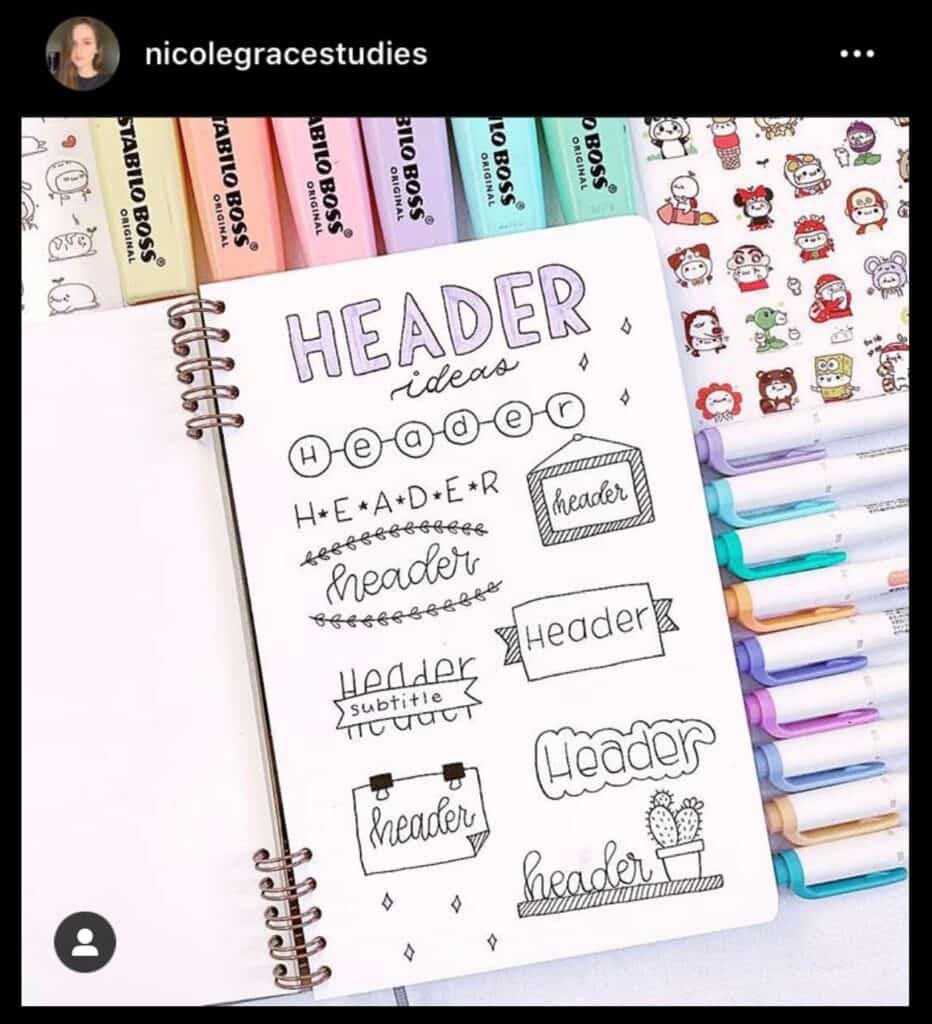 nicolegracestudies
STABILO BOSS®
ORIGINAL
STABILO BOSS®
ORIGINAL
STABILO BOSS®
ORIGINAL
STABILO BOSS®
ORIGINAL
STABILO BOSS®
ORIGINAL
STABILO BOSS®
ORIGINAL
HEADER
ideas
Header
H★E★A★D★E★R
header
header
Header
Header
subtitle
Header
header
header